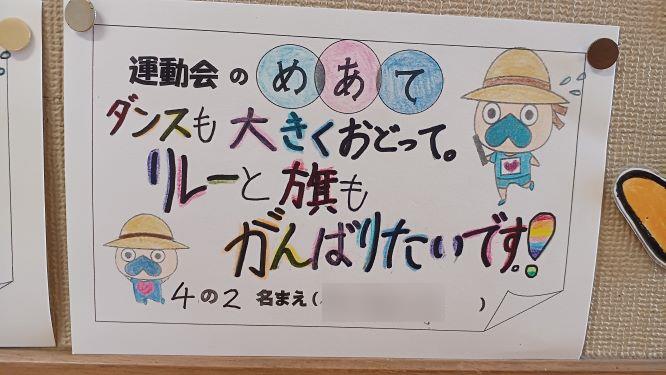 運動会のめあて
ダンスも大きくおどって。
リレーと旗も
がんばりたいです!
4の2 名まえ( )